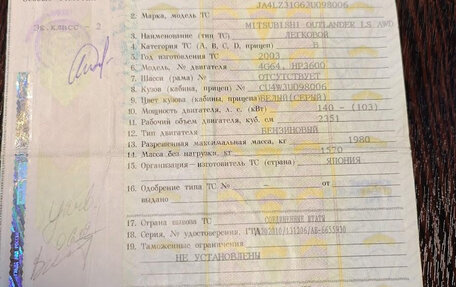 JA4LZ31G63U098006
Эк.класс - 2
2. Марка, модель ТС MITSUBISHI OUTLANDER LS AWD
3. Наименование (тип ТС) ЛЕГКОВОЙ
4. Категория ТС (A, B, C, D, прицеп) B
5. Год изготовления ТС 2003
6. Модель, № двигателя 4G64, HP3600
7. Шасси (рама) № ОТСУТСТВУЕТ
8. Кузов (кабина, прицеп) № CU4W3U098006
9. Цвет кузова (кабины, прицепа) БЕЛЫЙ(СЕРЫЙ)
10. Мощность двигателя, л. с. (кВт) 140 - (103)
11. Рабочий объем двигателя, куб. см 2351
12. Тип двигателя БЕНЗИНОВЫЙ
13. Разрешенная максимальная масса, кг 1980
14. Масса без нагрузки, кг 1570
15. Организация-изготовитель ТС (страна) ЯПОНИЯ
16. Одобрение типа ТС № - от
выдано
17. Страна вывоза ТС СОЕДИНЕННЫЕ ШТАТЫ
18. Серия, № удостоверения, ГТД
19. Таможенные ограничения
НЕ УСТАНОВЛЕНЫ